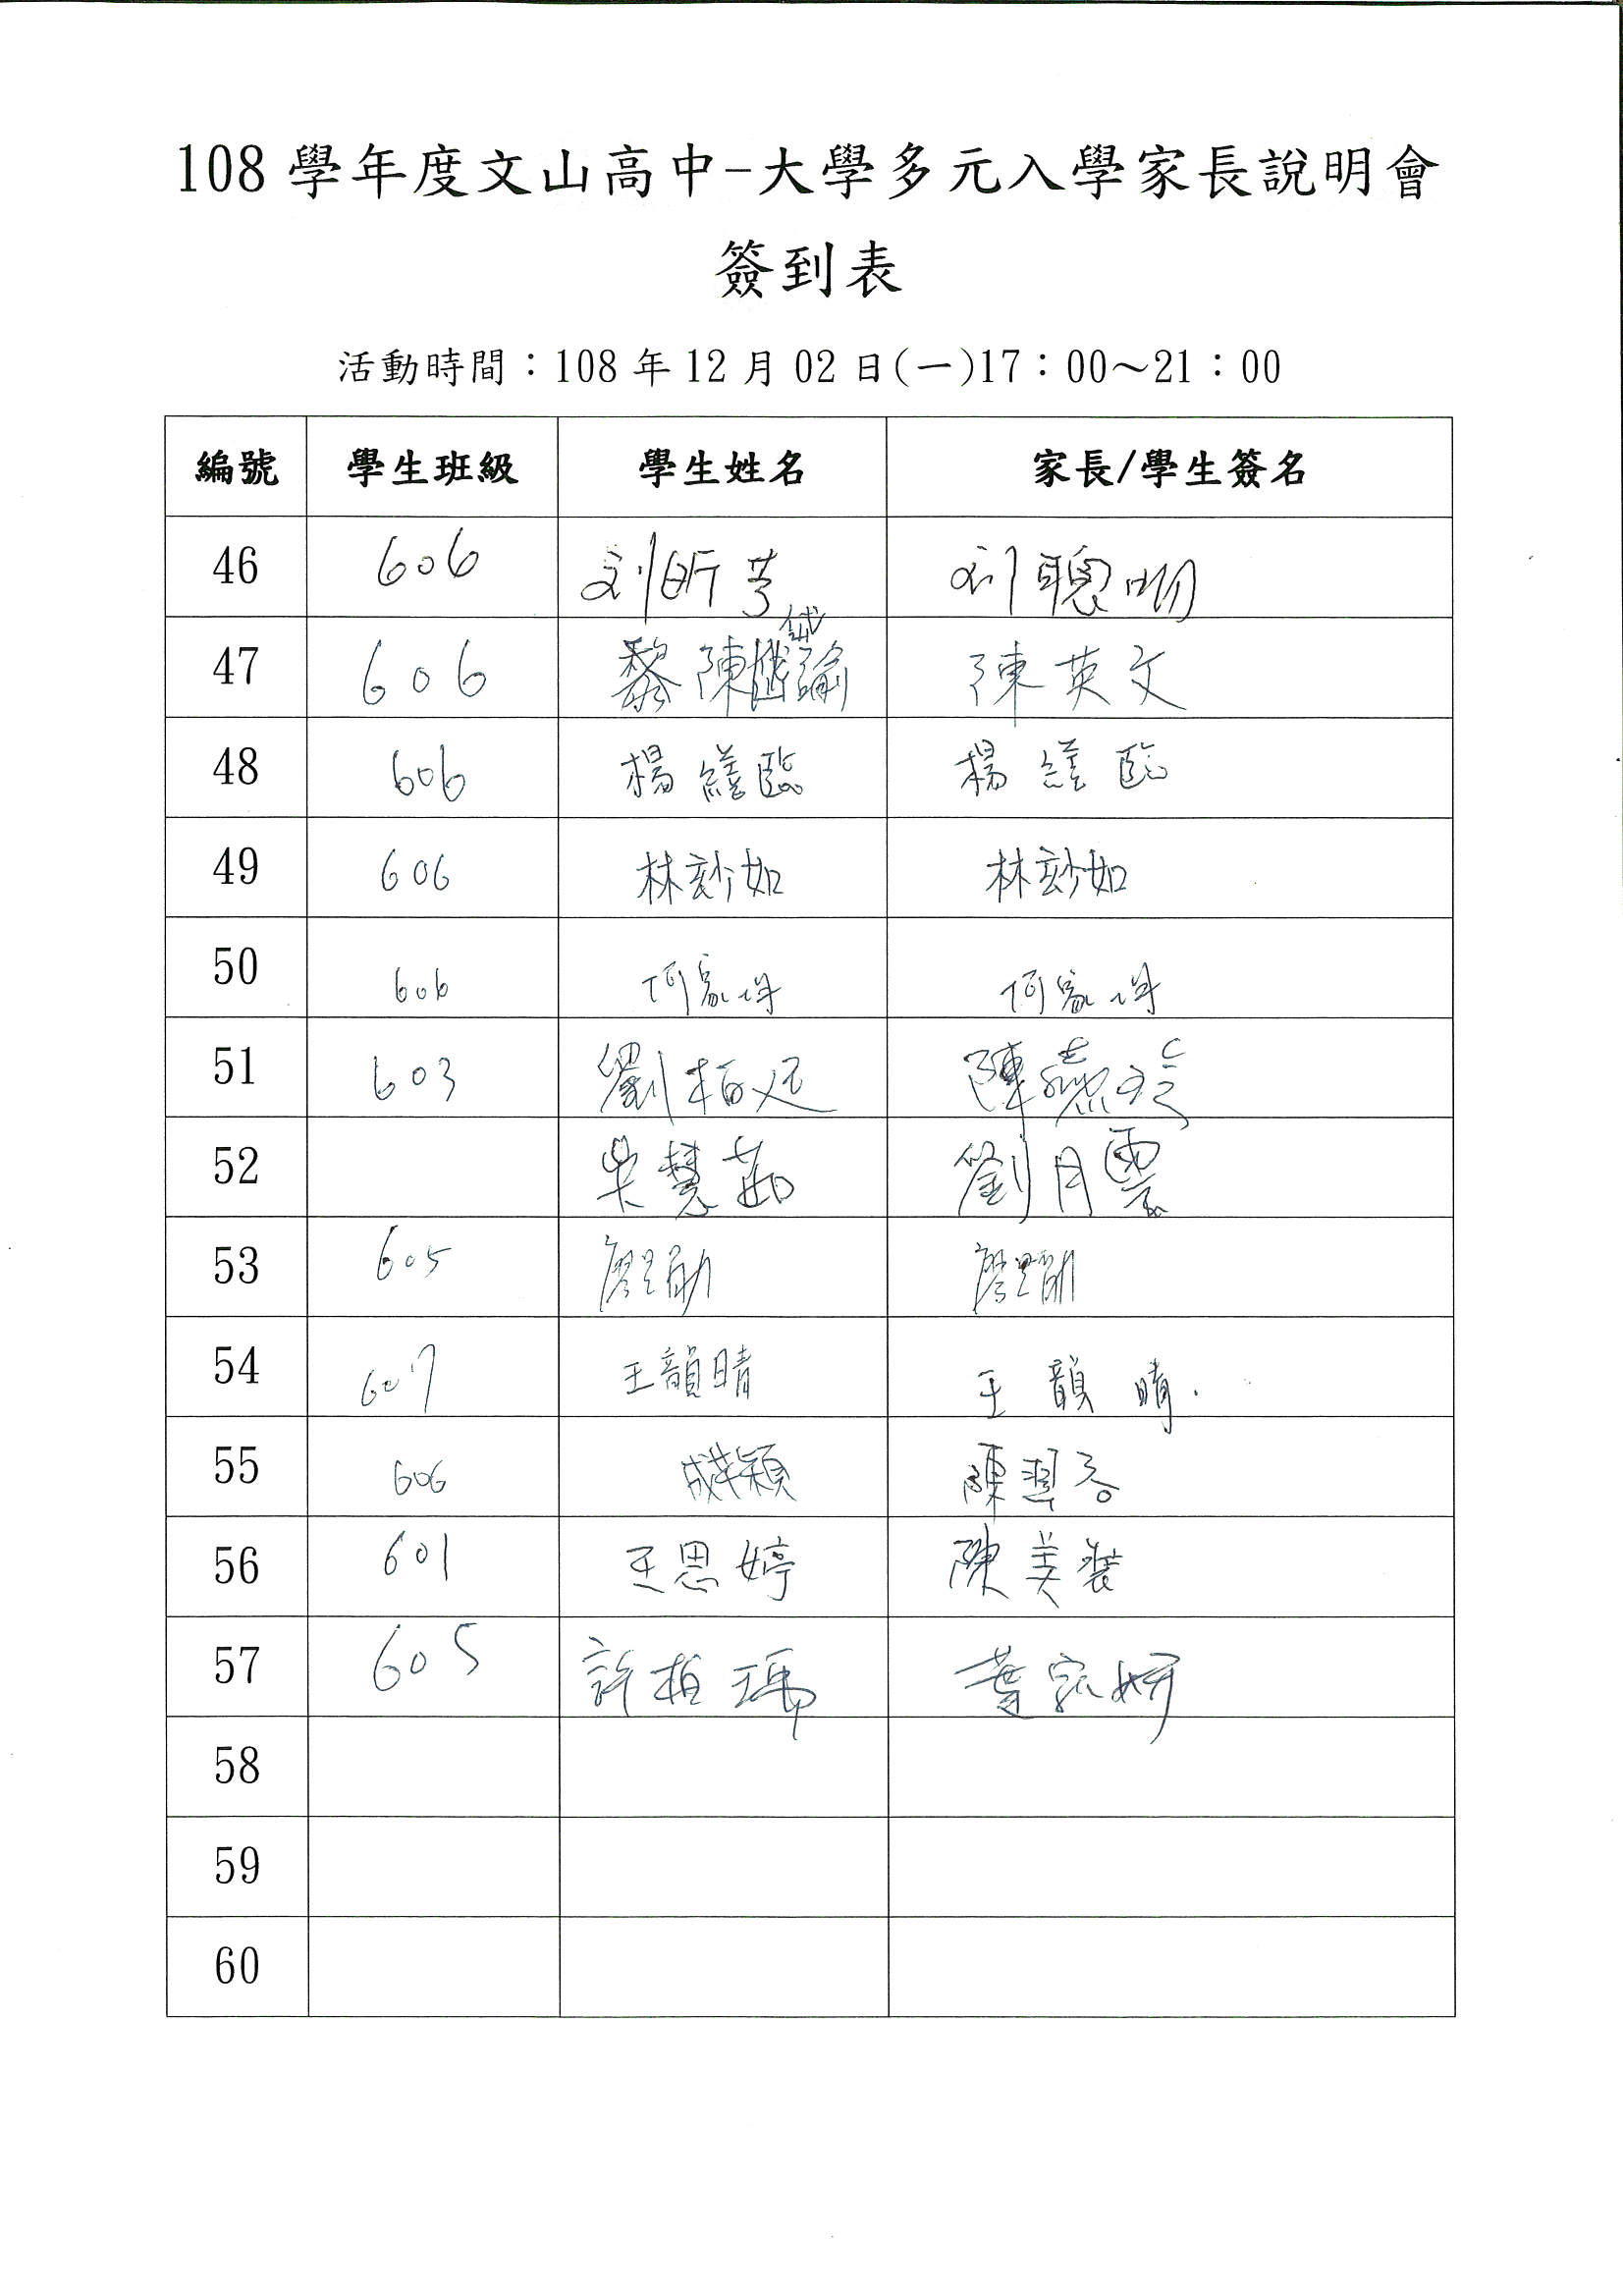 108 學年度文山高中-大學多元入學家長說明會
簽到表
活動時間：108 年 12 月 02 日(一)17：00～21：00
編號 學生班級 學生姓名 家長/學生簽名
46 606 刘昕 刘聰明
47 606 黎陳 諭 岱 陳英文
48 606 楊繕臨 楊繕臨
49 606 林玅如 林玅如
50 606 何家 何家
51 603 劉柏 陳燕玲
52 吳慧茹 劉月雲
53 605 廖 廖
54 607 王韻晴 王韻晴.
55 606 成苹穎 陳翠
56 601 王思婷 陳美裝
57 605 許植瑀 葉家妍
58
59
60